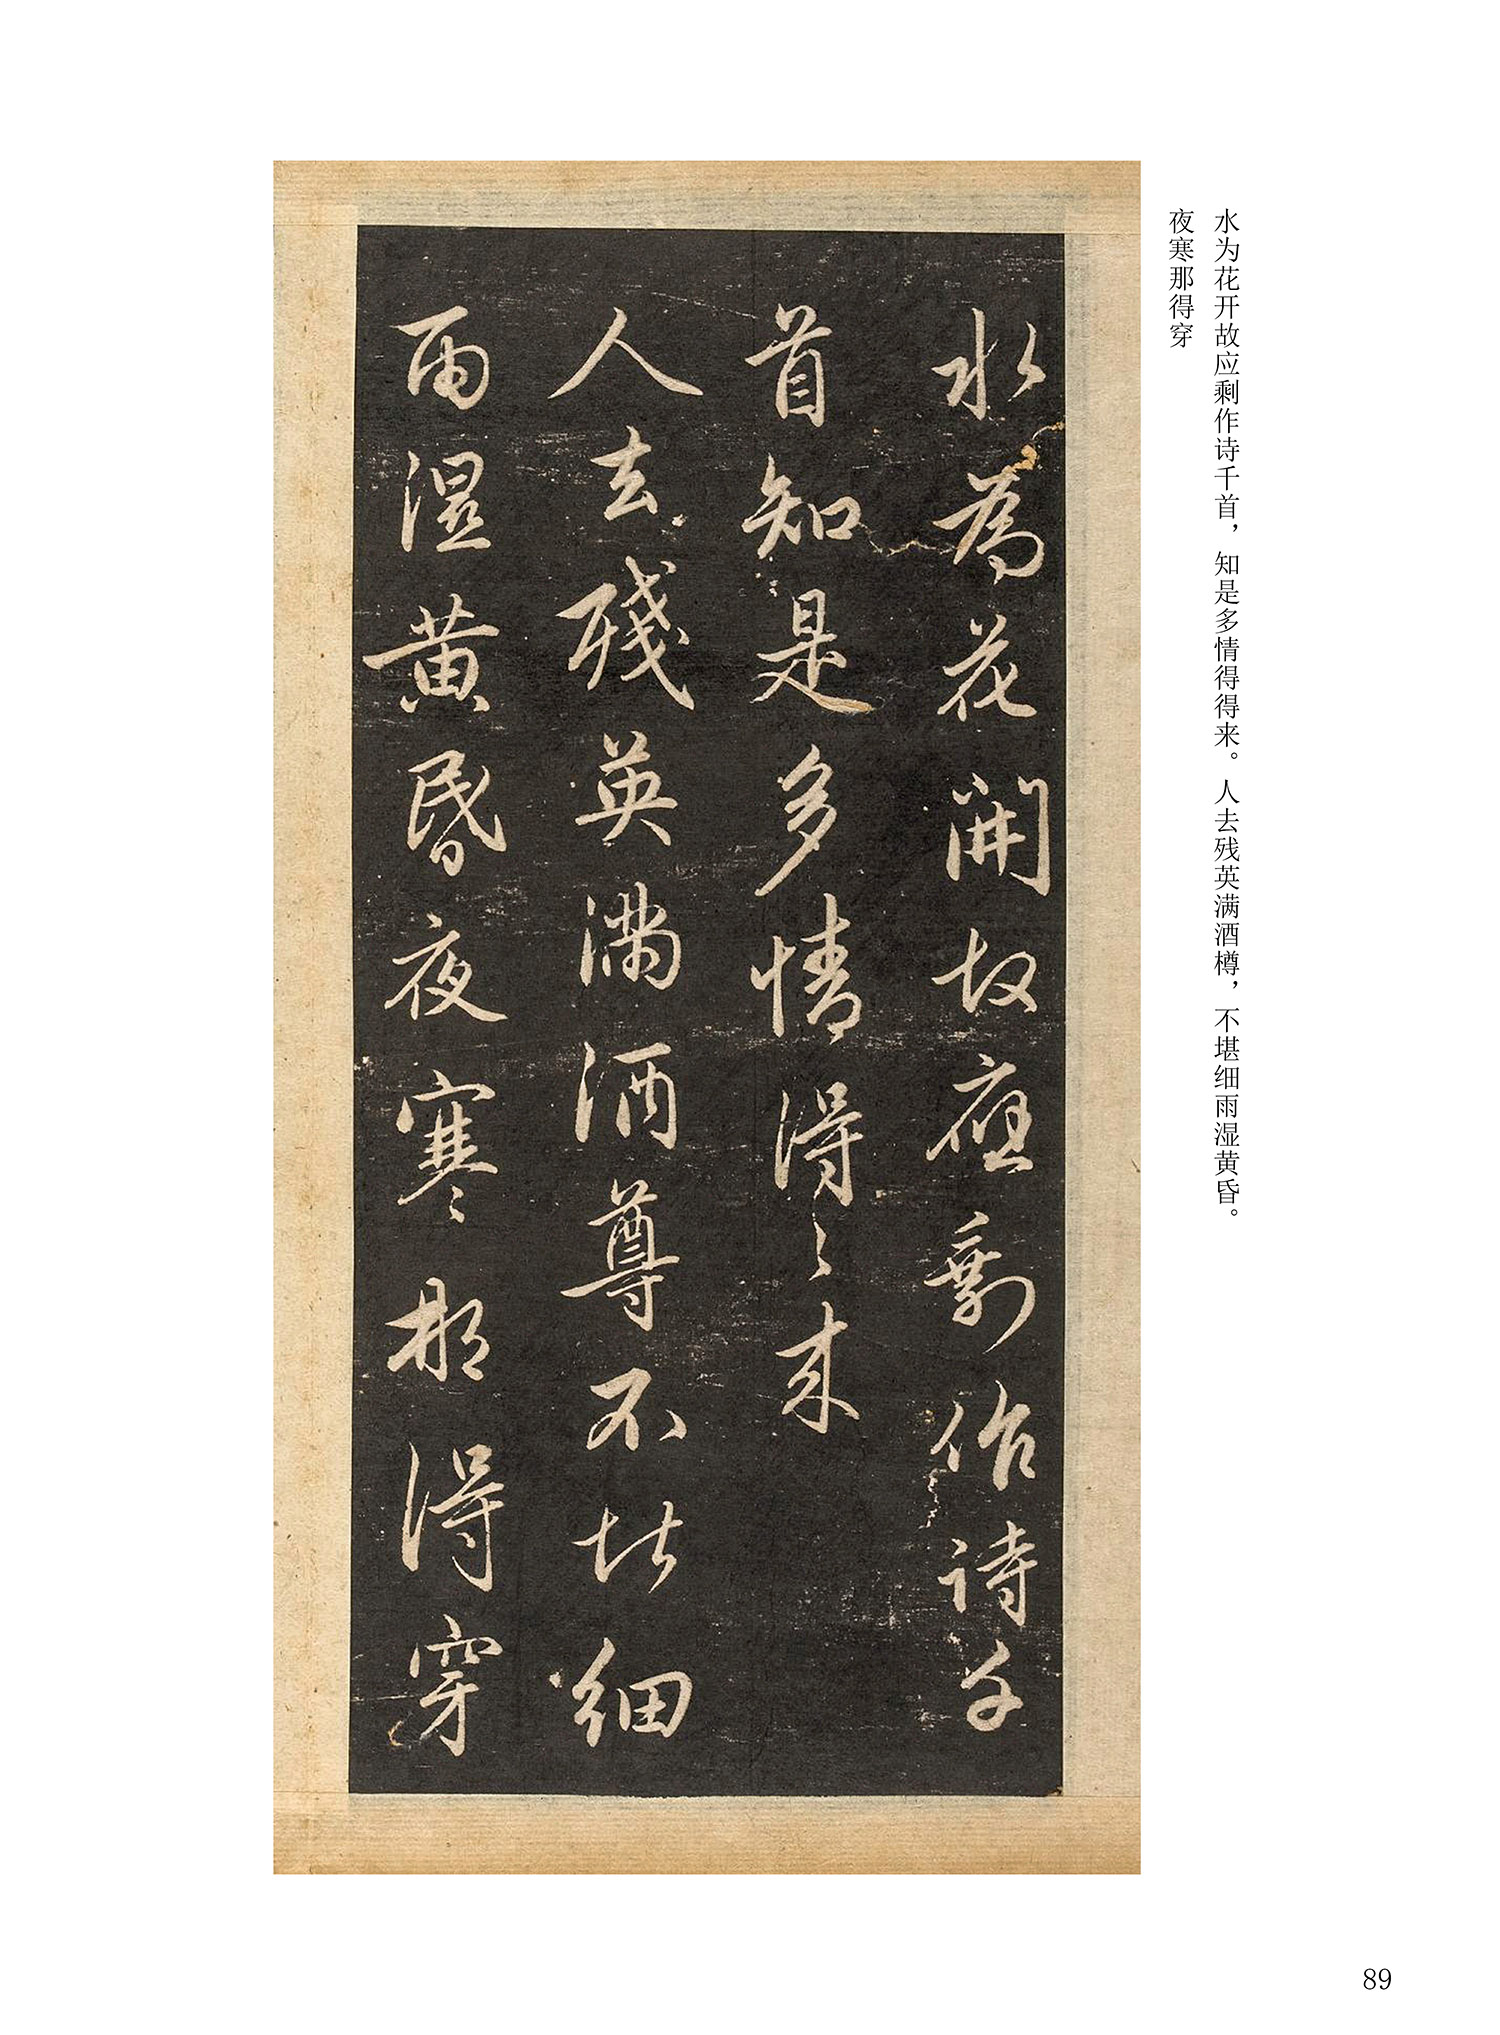 水为花开故应剩作诗千首，知是多情得得来。人去残英满酒樽，不堪细雨湿黄昏。
夜寒那得穿
水為花開故應剩作詩千
首知是多情得〻来
人去殘英滿酒尊不堪細
雨濕黃昏夜寒那得穿
89